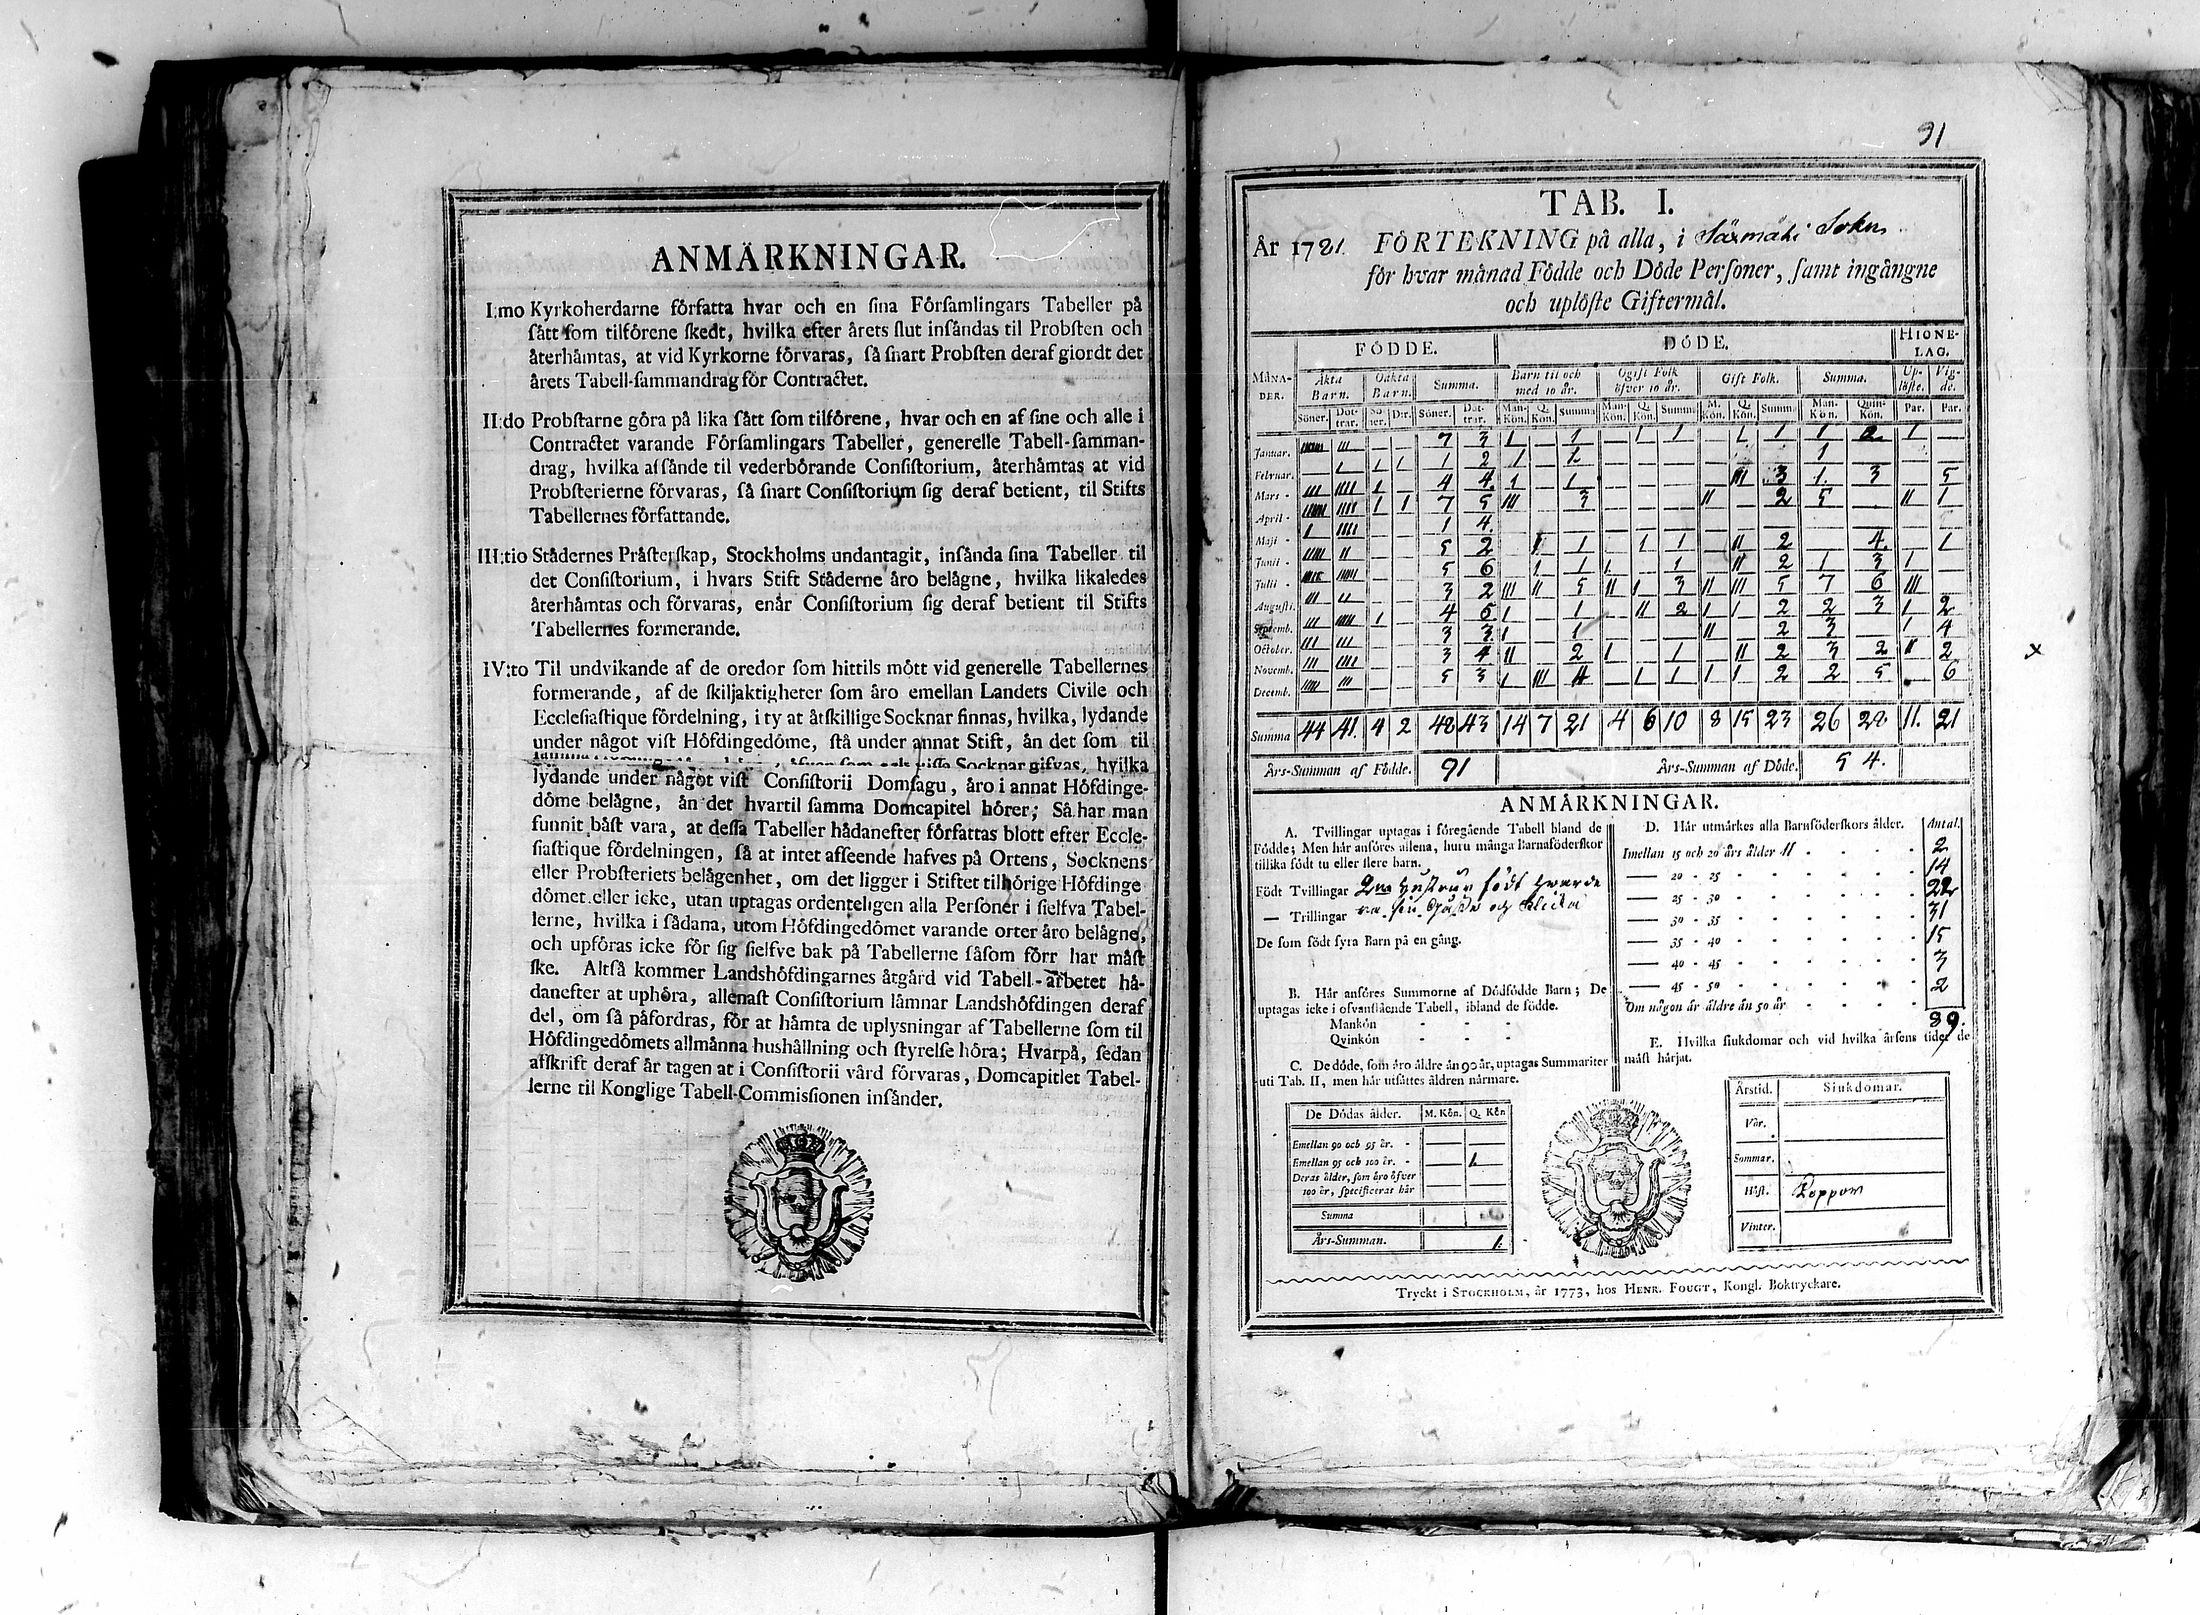 ANMÄRKNINGAR.
I:mo Kyrkoherdarne författa hvar och en sina Församlingars Tabeller på
sått som tilförene skedt, hvilka efter årets slut insåndas til Probsten och
återhåmtas, at vid Kyrkorne förvaras, så snart Probsten deraf giordt det
årets Tabell-sammandrag för Contractet.
II:do Probstarne göra på lika sått som tilförene, hvar och en af sine och alle i
Contractet varande Församlingars Tabeller, generelle Tabell-samman-
drag, hvilka afsånde til vederbörande Consistorium, återhåmtas at vid
Probsterierne förvaras, så snart Consistorium sig deraf betient, til Stifts
Tabellernes författande.
III:tio Städernes Pråsterskap, Stockholms undantagit, insånda sina Tabeller til
det Consistorium, i hvars Stift Städerne åro belågne, hvilka likaledes
återhåmtas och förvaras, enår Consistorium sig deraf betient til Stifts
Tabellernes formerande.
IV:to Til undvikande af de oredor som hittils mött vid generelle Tabellernes
formerande, af de skiljaktigheter som åro emellan Landets Civile och
Ecclesiastique fördelning, i ty at åtskillige Socknar finnas, hvilka, lydande
under något vist Höfdingedöme, stå under annat Stift, ån det som til
Socknar gifvas, hvilka
lydande under något vist Consistorii Domsagu, åro i annat Höfdinge-
döme belågne, ån det hvartil samma Domcapitel hörer; Så har man
funnit båst vara, at dessa Tabeller hådanefter författas blott efter Eccle-
siastique fördelningen, så at intet afseende hafves på Ortens, Socknens
eller Probsteriets belågenhet, om det ligger i Stiftet tilhörige Höfdinge
dömet eller icke, utan uptagas ordenteligen alla Personer i sielfva Tabel-
lerne, hvilka i sådana, utom Höfdingedömet varande orter åro belågne,
och upföras icke för sig sielfve bak på Tabellerne såsom förr har måst
ske. Altså kommer Landshöfdingarnes åtgård vid Tabell-arbetet hå-
danefter at uphöra, allenast Consistorium låmnar Landshöfdingen deraf
del, om så påfordras, för at håmta de uplysningar af Tabellerne som til
Höfdingedömets allmånna hushållning och styrelse höra; Hvarpå, sedan
afskrift deraf år tagen at i Consistorii vård förvaras, Domcapitlet Tabel-
lerne til Konglige Tabell-Commissionen insånder.
91
TAB. I.
År 1781. FÖRTEKNING på alla, i Säxmäki Sokn
för hvar månad Födde och Döde Personer, samt ingångne
och uplöste Giftermål.
FÖDDE. DÖDE. HIONE-LAG.
MÅNA-DER. Äkta Barn. Oäkta Barn. Summa. Barn til och med 10 år. Ogift Folk öfver 10 år. Gift Folk. Summa. Up-löste. Vig-de.
Söner. Dot-trar. Sö-ner. Dtr. Söner. Dot-trar. Man-Kön. Q. Kön. Summa Man-Kön. Q. Kön. Summ. M. Kön. Q. Kön. Summ. Man. Kön. Quin-Kön. Par. Par.
Januar. 7 3 1 — 1 — 1 1 — 1 1 1 2 1 —
Februar. 1 2 1 — 1
Mars - 4 4 1 — 1 — — — — III 3 1 3 — 5
April - 7 5 III 3 II 2 5 II 1
Maji - 1 4
Junii - 5 2 — II 1 — 1 1 — II 2 — 4 — 1
Julii - 5 6 — 1 1 1 — 1 — II 2 1 3 1 —
Augusti. 3 2 III II 5 II 1 3 II III 5 7 6 III
Septemb. 4 5 1 — 1 — II 2 1 1 2 2 3 1 2
October. 3 3 1 — 1 — — — II — 2 3 — 1 4
Novemb. 3 4 II — 2 1 — 1 — II 2 3 2 II 2
Decemb. 5 3 1 III 4 — 1 1 1 1 2 2 5 — 6
Summa 44 41. 4 2 48 43 14 7 21 4 6 10 8 15 23 26 28 11. 21
Års-Summan af Födde. 91 Års-Summan af Döde. 54.
x
ANMÄRKNINGAR.
A. Tvillingar uptagas i föregående Tabell bland de
Födde; Men hår anföres allena, huru många Barnaföderskor
tillika födt tu eller flere barn.
Födt Tvillingar 2ne Hustrur födt hvarde
— Trillingar ra sin Gosse og Flicka
De som födt fyra Barn på en gång.
B. Hår anföres Summorne af Dödfödde Barn; De
uptagas icke i ofvanstående Tabell, ibland de födde.
Mankön - - -
Qvinkön - - -
C. De döde, som åro äldre ån 90 år, uptagas Summariter
uti Tab. II, men hår utsättes åldren nårmare.
De Dödas ålder. M. Kön. Q. Kön
Emellan 90 och 95 år. - — —
Emellan 95 och 100 år. - — 1
Deras ålder, som åro öfver
100 år, specificeras hår — —
Summa
Års-Summan. 1.
D. Hår utmärkes alla Barnföderskors ålder. Antal.
Imellan 15 och 20 års ålder II 2
— 20 - 25 14
— 25 - 30 22
— 30 - 35 31
— 35 - 40 15
— 40 - 45 3
— 45 - 50 2
Om någon är äldre än 50 år
89.
E. Hvilka siukdomar och vid hvilka årsens tider de
måst hårjat.
Årstid. Siukdomar.
Vår.
Sommar.
Höst. Koppor
Vinter.
Tryckt i STOCKHOLM, år 1773, hos HENR. FOUGT, Kongl. Boktryckare.